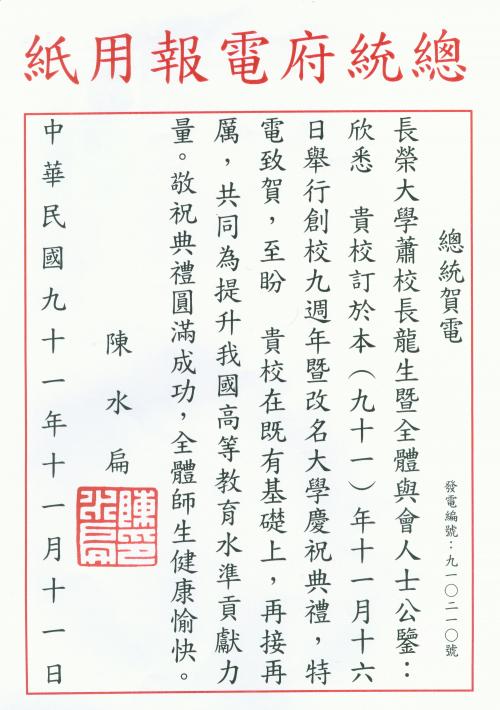 總統府電報用紙
總統賀電
發電編號：九一〇二一〇號
長榮大學蕭校長龍生暨全體與會人士公鑒：
欣悉　貴校訂於本（九十一）年十一月十六
日舉行創校九週年暨改名大學慶祝典禮，特
電致賀，至盼　貴校在既有基礎上，再接再
厲，共同為提升我國高等教育水準貢獻力
量。敬祝典禮圓滿成功，全體師生健康愉快。
陳水扁
陳水扁印
中華民國九十一年十一月十一日